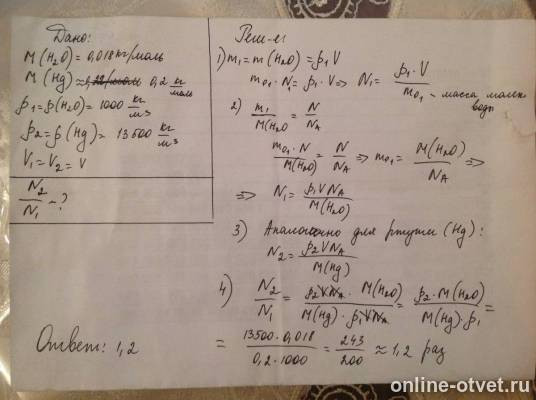 Дано:
M(H₂O) = 0,018 кг/моль
M(Hg) ≈ 0,2 кг/моль
ρ₁ = ρ(H₂O) = 1000 кг/м³
ρ₂ = ρ(Hg) = 13500 кг/м³
V₁ = V₂ = V
N₂/N₁ - ?
Реш-е:
1) m₁ = m(H₂O) = ρ₁V
m₀₁ · N₁ = ρ₁ · V => N₁ = ρ₁ · V / m₀₁ - масса молек воды
2) m₁/M(H₂O = N/Nₐ
m₀₁ · N / M(H₂O) = N/Nₐ => m₀₁ = M(H₂O)/Nₐ =>
=> N₁ = ρ₁VNₐ / M(H₂O)
3) Аналогично для ртути (Hg):
N₂ = ρ₂VNₐ / M(Hg)
4) N₂/N₁ = ρ₂VNₐ · M(H₂O) / M(Hg) · ρ₁VNₐ = ρ₂ · M(H₂O) / M(Hg) · ρ₁ =
= 13500 · 0,018 / 0,2 · 1000 = 243/200 ≈ 1,2 раз
Ответ: 1,2
online-otvet.ru